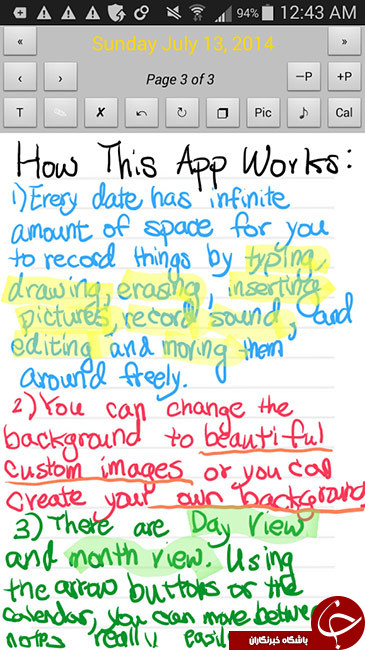 94% 12:43 AM
« Sunday July 13, 2014 »
‹ › Page 3 of 3 −P +P
T ✗ Pic ♪ Cal
How This App Works:
1) Every date has infinite
amount of space for you
to record things by typing,
drawing, erasing, inserting
pictures, record sound, and
editing and moving them
around freely.
2) You can change the
background to beautiful
custom images or you can
create your own background
3) There are Day View
and month view. Using
the arrow buttons or the
calendar, you can move between
notes really easily
باشگاه خبرنگاران